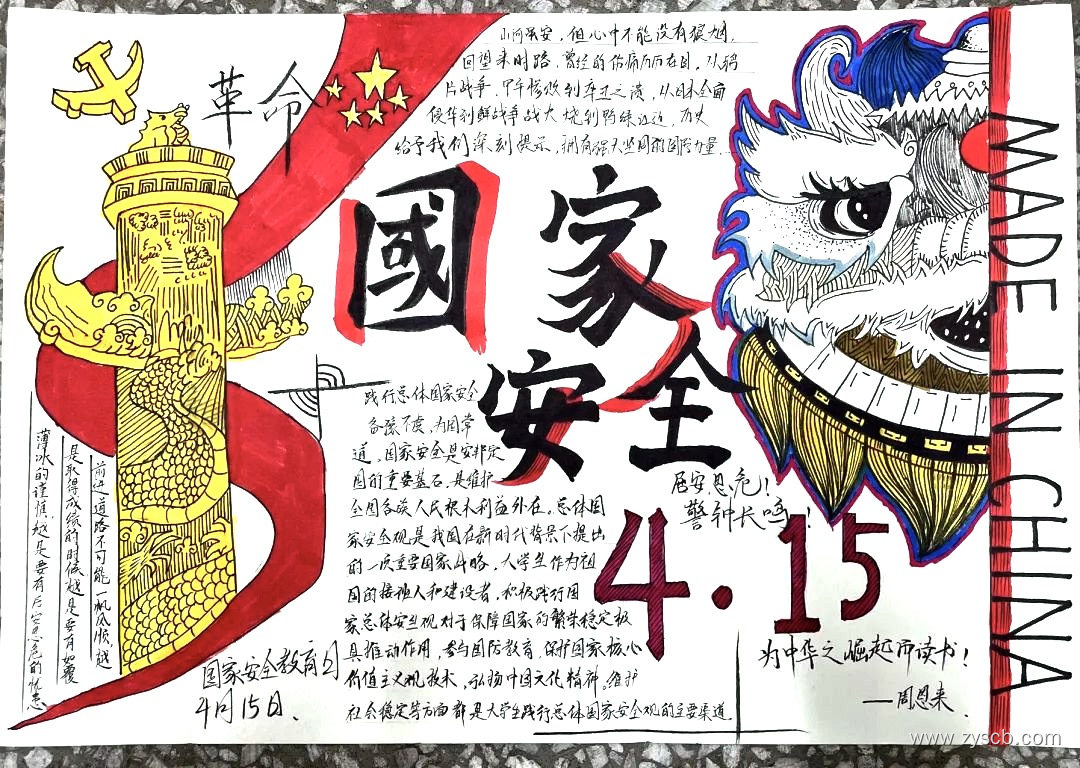 革命
山河虽安，但心中不能没有狼烟，
回望来时路，曾经的伤痛历历在目，从鸦
片战争，甲午惨败到辛丑之耻，从日本全面
侵华到朝鲜战争战火烧到鸭绿江边，历史
给予我们深刻提示，拥有强大坚固的国防力量
國家
安全
践行总体国家安全
道，国家安全是安邦定
国的重要基石，是维护
全国各族人民根本利益外在。总体国
家安全观是我国在新时代背景下提出
的一次重要国家战略，大学生作为祖
国的接班人和建设者，积极践行国
家总体安全观对于保障国家的繁荣稳定极
具推动作用，参与国防教育，保护国家核心
价值主义观技术，弘扬中国文化精神。维护
社会稳定等方面都是大学生践行总体国家安全观的主要渠道
居安思危！
警钟长鸣！
4.15
为中华之崛起而读书！
—周恩来.
MADE IN CHINA
前进道路不可能一帆风顺，越
是取得成绩的时候越是要有如履
薄冰的谨慎，越是要有居安思危的忧患
国家安全教育日
4月15日、
www.zyscb.com